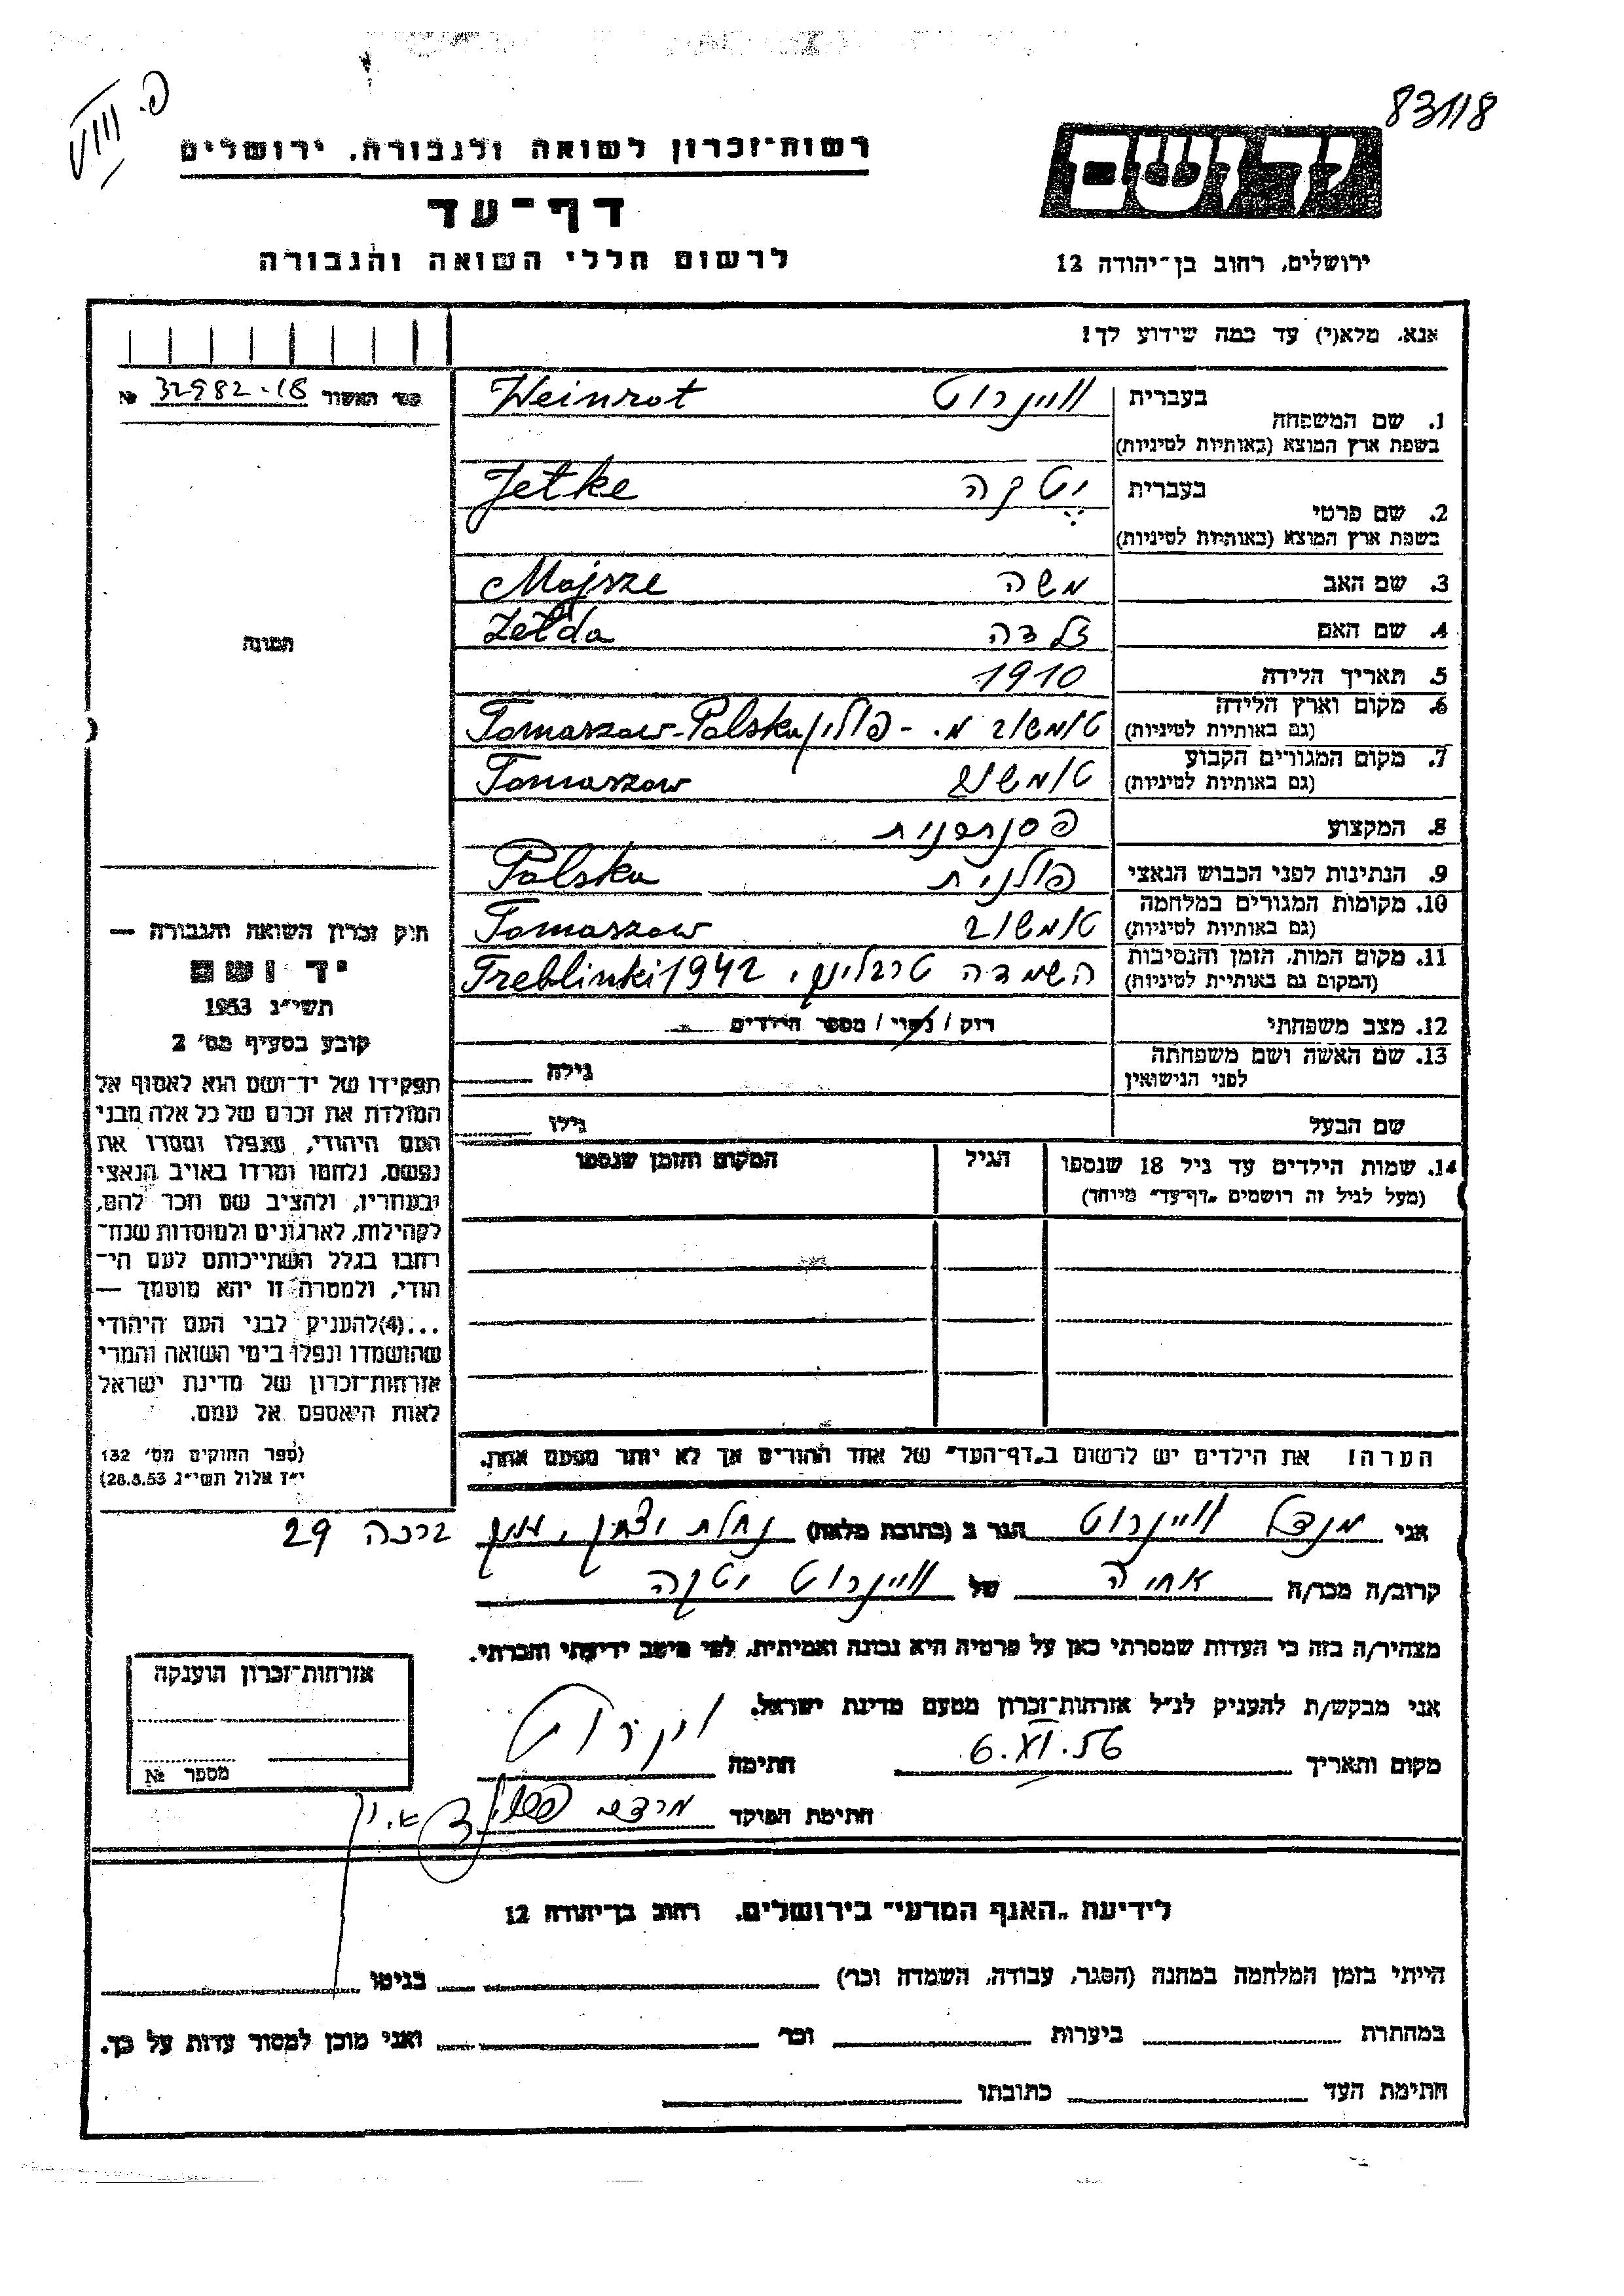 83118
ו. וויט
יד ושם
רשות־זכרון לשואה ולגבורה. ירושלים
דף־עד
לרשום חללי השואה והגבורה
ירושלים, רחוב בן־יהודה 12
אנא. מלא(י) עד כמה שידוע לך!
מס׳ האשור № 32982-18
בעברית ווינרוט Weinrot
1. שם המשפחה
בשפת ארץ המוצא (באותיות לטיניות)
בעברית יטקה Jetke
2. שם פרטי
בשפת ארץ המוצא (באותיות לטיניות)
3. שם האב משה Mojsze
4. שם האם זלדה Zelda
5. תאריך הלידה 1910
6. מקום וארץ הלידה טומשוב מ. - פולין Tomaszow-Polska
(גם באותיות לטיניות)
7. מקום המגורים הקבוע טומשוב Tomaszow
(גם באותיות לטיניות)
8. המקצוע
9. הנתינות לפני הכבוש הנאצי פולנית Polska
10. מקומות המגורים במלחמה טומשוב Tomaszow
(גם באותיות לטיניות)
11. מקום המות, הזמן והנסיבות השמדה Treblinki 1942
(המקום גם באותיות לטיניות)
12. מצב משפחתי רוק / נשוי / מספר הילדים
13. שם האשה ושם משפחתה גילה
לפני הנישואין
שם הבעל גילו
14. שמות הילדים עד גיל 18 שנספו הגיל המקום והזמן שנספו
(מעל לגיל זה רושמים „דף־עד״ מיוחד)
תמונה
חוק זכרון השואה והגבורה —
יד ושם
תשי״ג 1953
קובע בסעיף מס׳ 2
תפקידו של יד־ושם הוא לאסוף אל
המולדת את זכרם של כל אלה מבני
העם היהודי, שנפלו ומסרו את
נפשם, נלחמו ומרדו באויב הנאצי
ובעוזריו, ולהציב שם וזכר להם,
לקהילות, לארגונים ולמוסדות שנח־
רבו בגלל השתייכותם לעם הי־
הודי, ולמטרה זו יהא מוסמך —
...(4)להעניק לבני העם היהודי
שהושמדו ונפלו בימי השואה והמרי
אזרחות־זכרון של מדינת ישראל
לאות היאספם אל עמם.
(ספר החוקים מס׳ 132
י״ז אלול תשי״ג 28.8.53)
הערה! את הילדים יש לרשום ב„דף־העד״ של אחד ההורים אך לא יותר מפעם אחת.
אני מנדל ווינרוט הגר ב (כתובת מלאה) נחלת יצחק, ברכה 29
קרוב/ה מכר/ה אחיה של ווינרוט יטקה
מצהיר/ה בזה כי העדות שמסרתי כאן על פרטיה היא נכונה ואמיתית, לפי מיטב ידיעתי והכרתי.
אני מבקש/ת להעניק לנ״ל אזרחות־זכרון מטעם מדינת ישראל.
מקום ותאריך 6.XI.56 חתימה וינרוט
חתימת הפוקד
אזרחות־זכרון הוענקה
מספר №
לידיעת „האגף המדעי״ בירושלים. רחוב בן־יהודה 12
הייתי בזמן המלחמה במחנה (הסגר, עבודה, השמדה וכר׳) בגיטו
במחתרת ביערות וכר׳ ואני מוכן למסור עדות על כך.
חתימת העד כתובתו